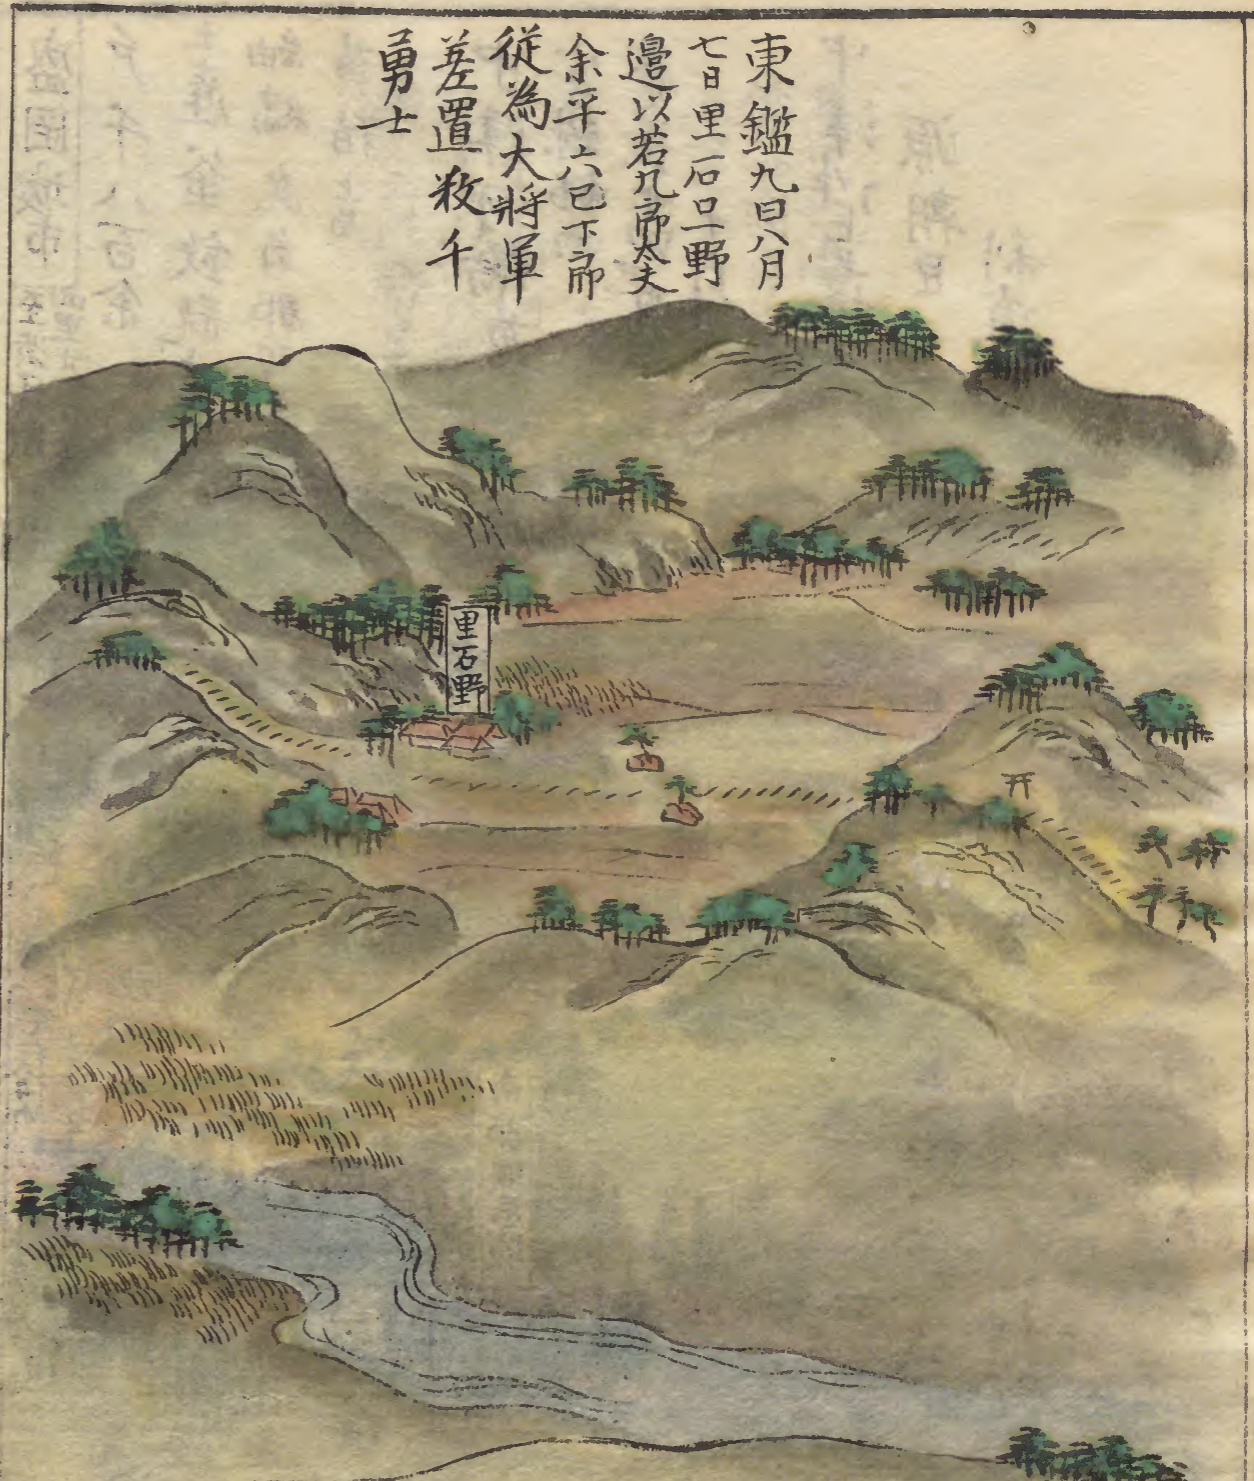 東鑑九曰八月
七日里石口一野
邉以若九郎大夫
余平六已下郎
従為大將軍
差置数千
勇士
里石野